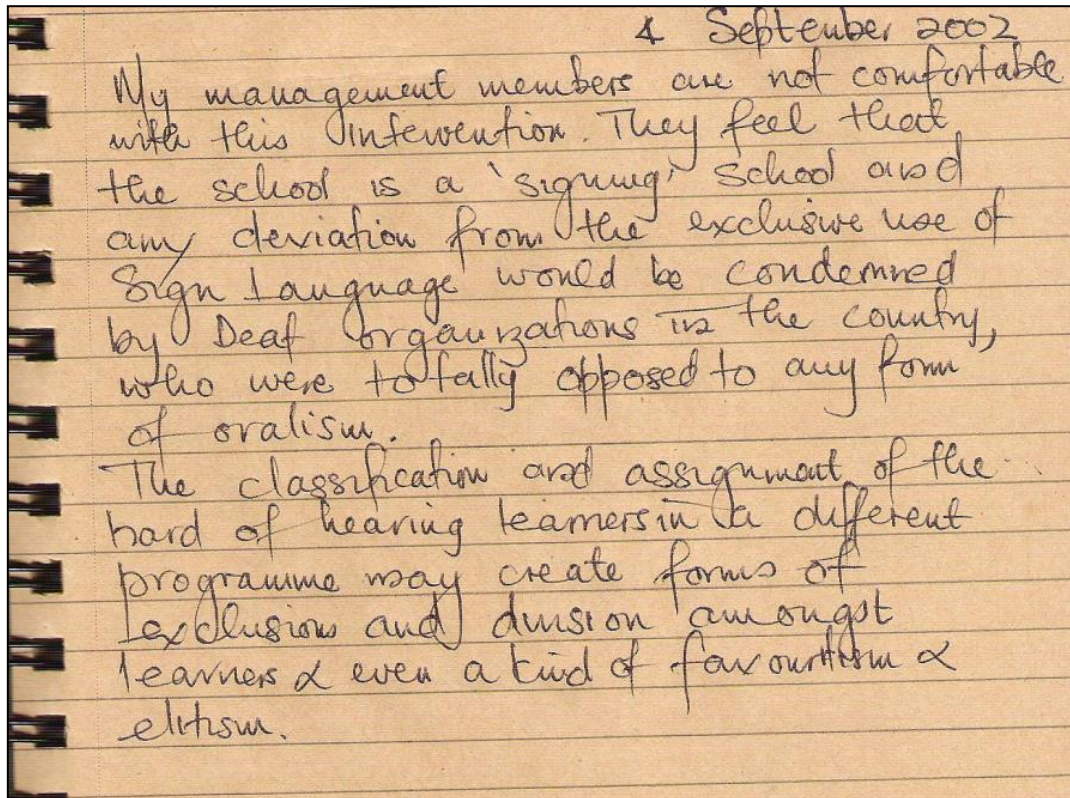 4 September 2002
My management members are not comfortable
with this intervention. They feel that
the school is a 'signing' school and
any deviation from the exclusive use of
Sign Language would be condemned
by Deaf organizations in the country,
who were totally opposed to any form
of oralism.
The classification and assignment of the
hard of hearing learners in a different
programme may create forms of
exclusion and division amongst
learners & even a kind of favouritism &
elitism.